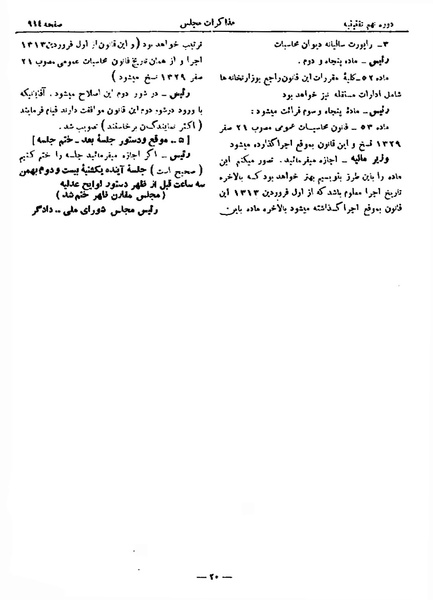 دوره نهم تقنینیه
مذاکرات مجلس
صفحه ۹۱٤
۳ـ راپورت سالیانه دیوان محاسبات
رئیس ـ ماده پنجاه و دوم .
ماده ۵۲ـ کلیهٔ مقررات این قانون راجع بوزارتخانه ها
شامل ادارات مستقله نیز خواهد بود
رئیس ـ ماده پنجاه و سوم قرائت میشود :
ماده ۵۳ ـ قانون محاسبات عمومی مصوب ۲۱ صفر
۱۳۲۹ نسخ و این قانون بموقع اجراگذارده میشود
وزیر مالیه ـ اجازه میفرمائید. تصور میکنم این
ماده را باین طرز بنویسیم بهتر خواهد بود که بالاخره
تاریخ اجرا معلوم باشد که از اول فروردین ۱۳۱۳ این
قانون به‌موقع اجرا گذاشته میشود بالاخره ماده باین
ترتیب خواهد بود ( و این قانون از اول فروردین ۱۳۱۳
اجرا و از همان تاریخ قانون محاسبات عمومی مصوب ۲۱
صفر ۱۳۲۹ نسخ میشود )
رئیس ـ در شور دوم این اصلاح میشود. آقایانیکه
با ورود درشور دوم این قانون موافقت دارند قیام فرمایند
( اکثر نمایندگان برخاستند ) تصویب شد .
[ ۵ ـ موقع ودستور جلسهٔ بعد ـ ختم جلسه ]
رئیس ـ اگر اجازه میفرمائید جلسه را ختم کنیم
( صحیح است ) جلسهٔ آینده یکشنبهٔ بیست و دوم بهمن
سه ساعت قبل از ظهر دستور لوایح عدلیه
( مجلس مقارن ظهر ختم شد )
رئیس مجلس شورای ملی .. دادگر
ـ ۲۰ ـ